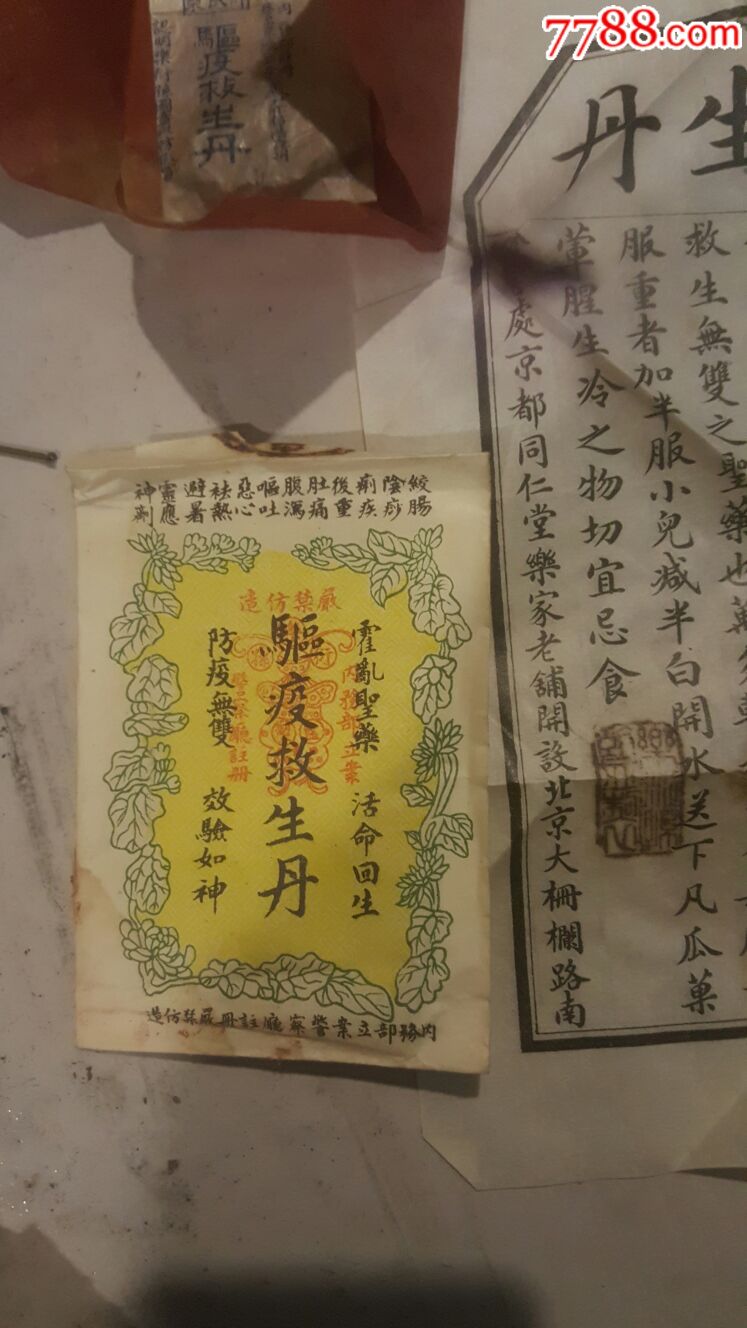 7788.com
驅疫救生丹
生丹
救生無雙之聖藥也
服重者加半服小兒減半白開水送下凡瓜菓
葷腥生冷之物切宜忌食
處京都同仁堂樂家老舖開設北京大柵欄路南
絞腸
陰痧
痢疾
後重
肚痛
腹瀉
嘔吐
惡心
祛熱
避暑
靈應
神劑
嚴禁仿造
霍亂聖藥 活命回生
內務部立案
驅疫救生丹
警察廳註冊
防疫無雙 效驗如神
內務部立案警察廳註冊嚴禁仿造